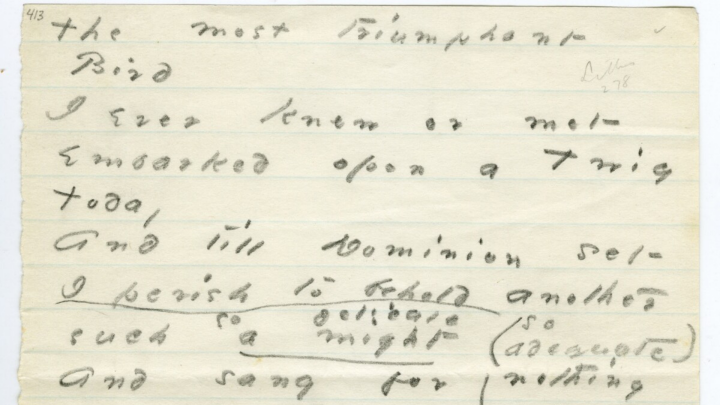 413
The most triumphant
Bird
I Ever knew or met
Embarked upon a twig
today
And till Dominion set
I perish to behold another
so delicate (so
such a might adequate)
And sang for nothing